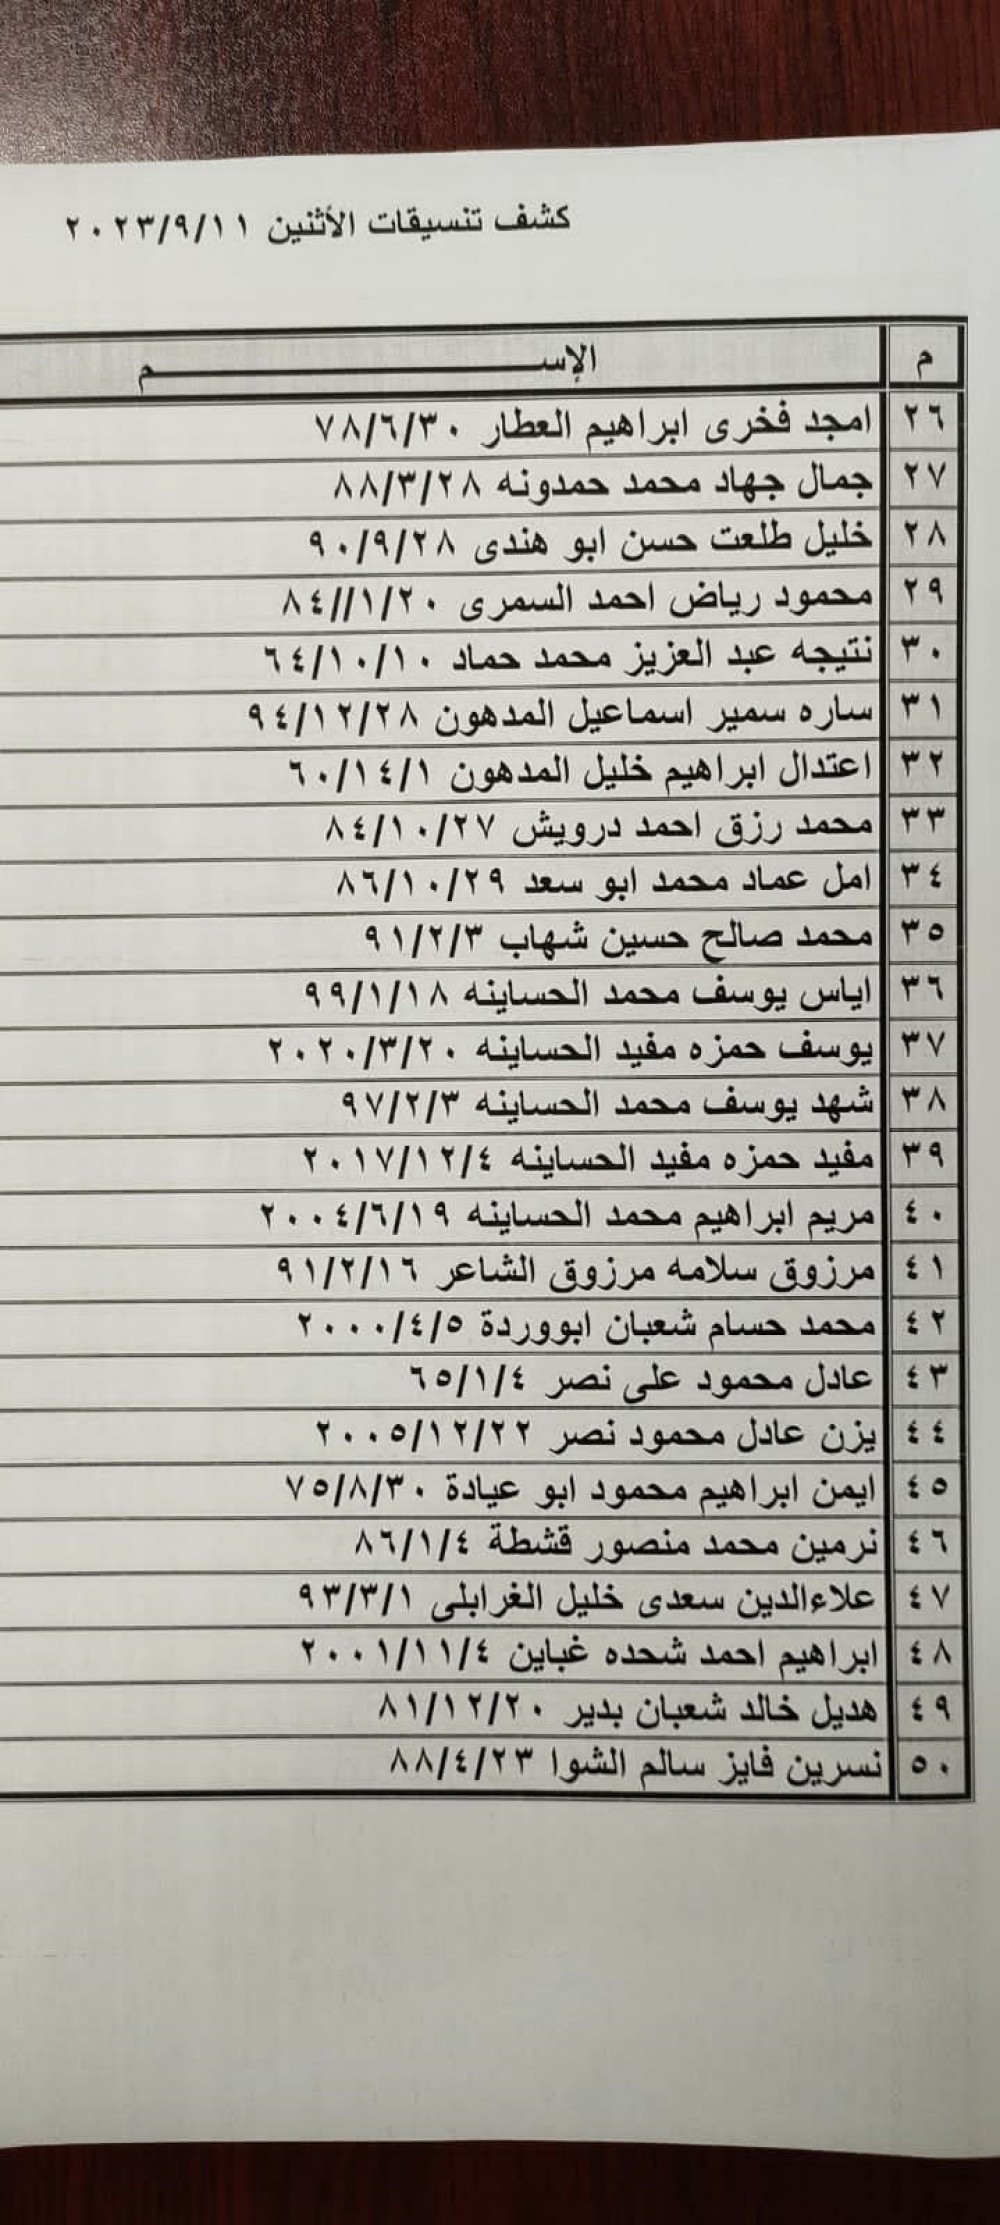 كشف تنسيقات الأثنين ٢٠٢٣/٩/١١
م الإســـــــــــــــــم
٢٦ امجد فخرى ابراهيم العطار ٧٨/٦/٣٠
٢٧ جمال جهاد محمد حمدونه ٨٨/٣/٢٨
٢٨ خليل طلعت حسن ابو هندى ٩٠/٩/٢٨
٢٩ محمود رياض احمد السمرى ٨٤//١/٢٠
٣٠ نتيجه عبد العزيز محمد حماد ٦٤/١٠/١٠
٣١ ساره سمير اسماعيل المدهون ٩٤/١٢/٢٨
٣٢ اعتدال ابراهيم خليل المدهون ٦٠/١٤/١
٣٣ محمد رزق احمد درويش ٨٤/١٠/٢٧
٣٤ امل عماد محمد ابو سعد ٨٦/١٠/٢٩
٣٥ محمد صالح حسين شهاب ٩١/٢/٣
٣٦ اياس يوسف محمد الحساينه ٩٩/١/١٨
٣٧ يوسف حمزه مفيد الحساينه ٢٠٢٠/٣/٢٠
٣٨ شهد يوسف محمد الحساينه ٩٧/٢/٣
٣٩ مفيد حمزه مفيد الحساينه ٢٠١٧/١٢/٤
٤٠ مريم ابراهيم محمد الحساينه ٢٠٠٤/٦/١٩
٤١ مرزوق سلامه مرزوق الشاعر ٩١/٢/١٦
٤٢ محمد حسام شعبان ابووردة ٢٠٠٠/٤/٥
٤٣ عادل محمود على نصر ٦٥/١/٤
٤٤ يزن عادل محمود نصر ٢٠٠٥/١٢/٢٢
٤٥ ايمن ابراهيم محمود ابو عيادة ٧٥/٨/٣٠
٤٦ نرمين محمد منصور قشطة ٨٦/١/٤
٤٧ علاءالدين سعدى خليل الغرابلى ٩٣/٣/١
٤٨ ابراهيم احمد شحده غباين ٢٠٠١/١١/٤
٤٩ هديل خالد شعبان بدير ٨١/١٢/٢٠
٥٠ نسرين فايز سالم الشوا ٨٨/٤/٢٣